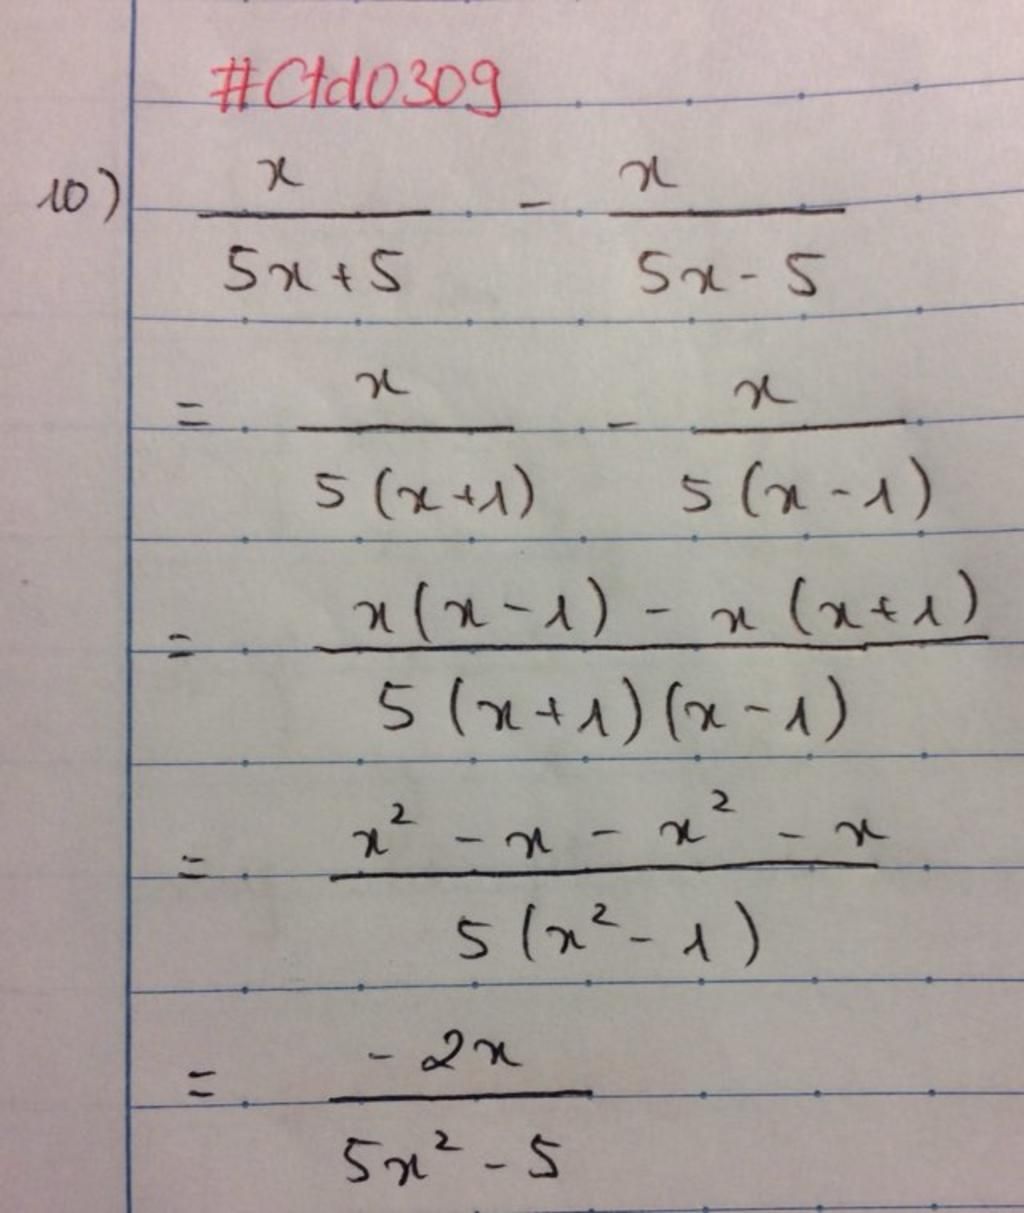 #Ctd0309
10) x/(5x+5) - x/(5x-5)
= x/(5(x+1)) - x/(5(x-1))
= (x(x-1) - x(x+1))/(5(x+1)(x-1))
= (x² - x - x² - x)/(5(x²-1))
= -2x/(5x²-5)